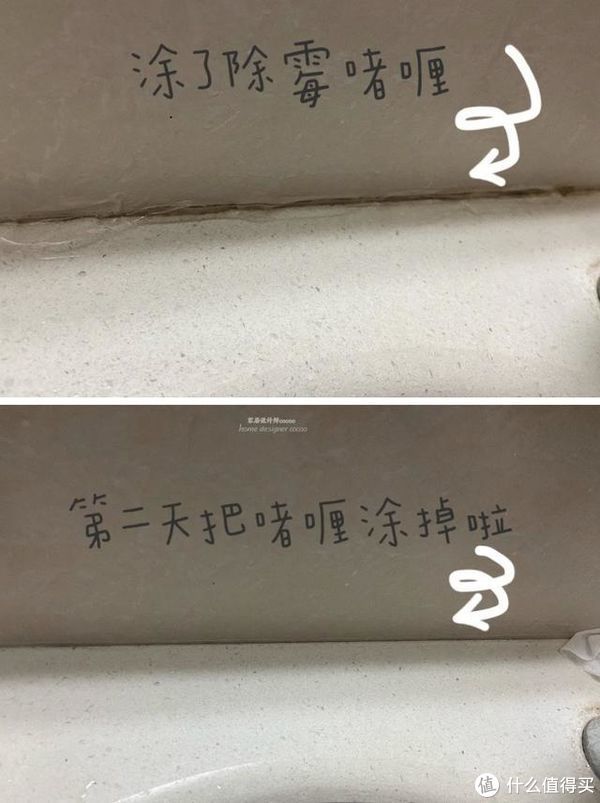 涂了除霉啫喱
家居设计师cocoo
home designer cocoo
第二天把啫喱涂掉啦
值 什么值得买